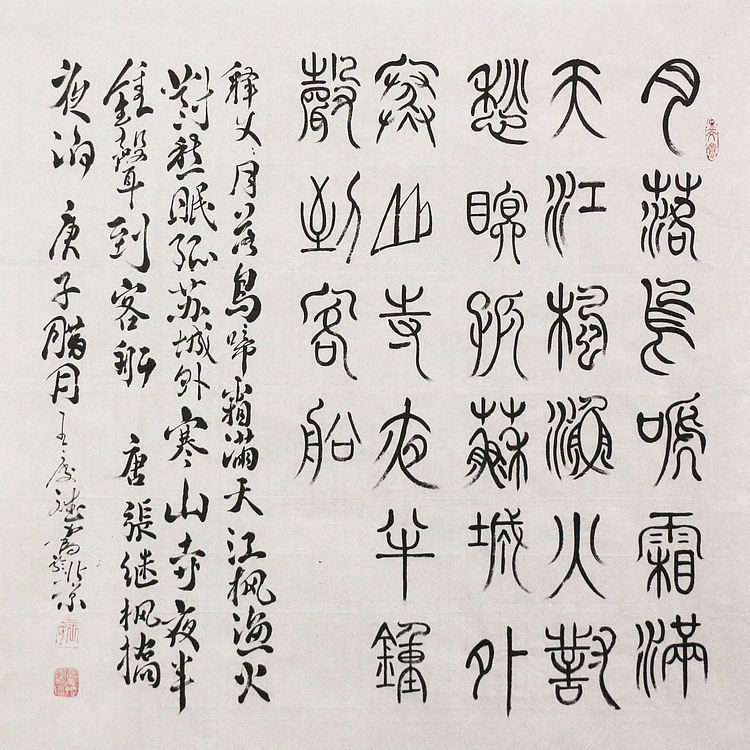 月落烏嗁霜滿
天江楓漁火對
愁瞑孤蘇城外
寒山寺夜半鍾
聲到客船
释文：月落烏啼霜滿天江枫漁火
對愁眠孤苏城外寒山寺夜半
鍾聲到客船 唐張继枫橋
夜泊 庚子腊月 王